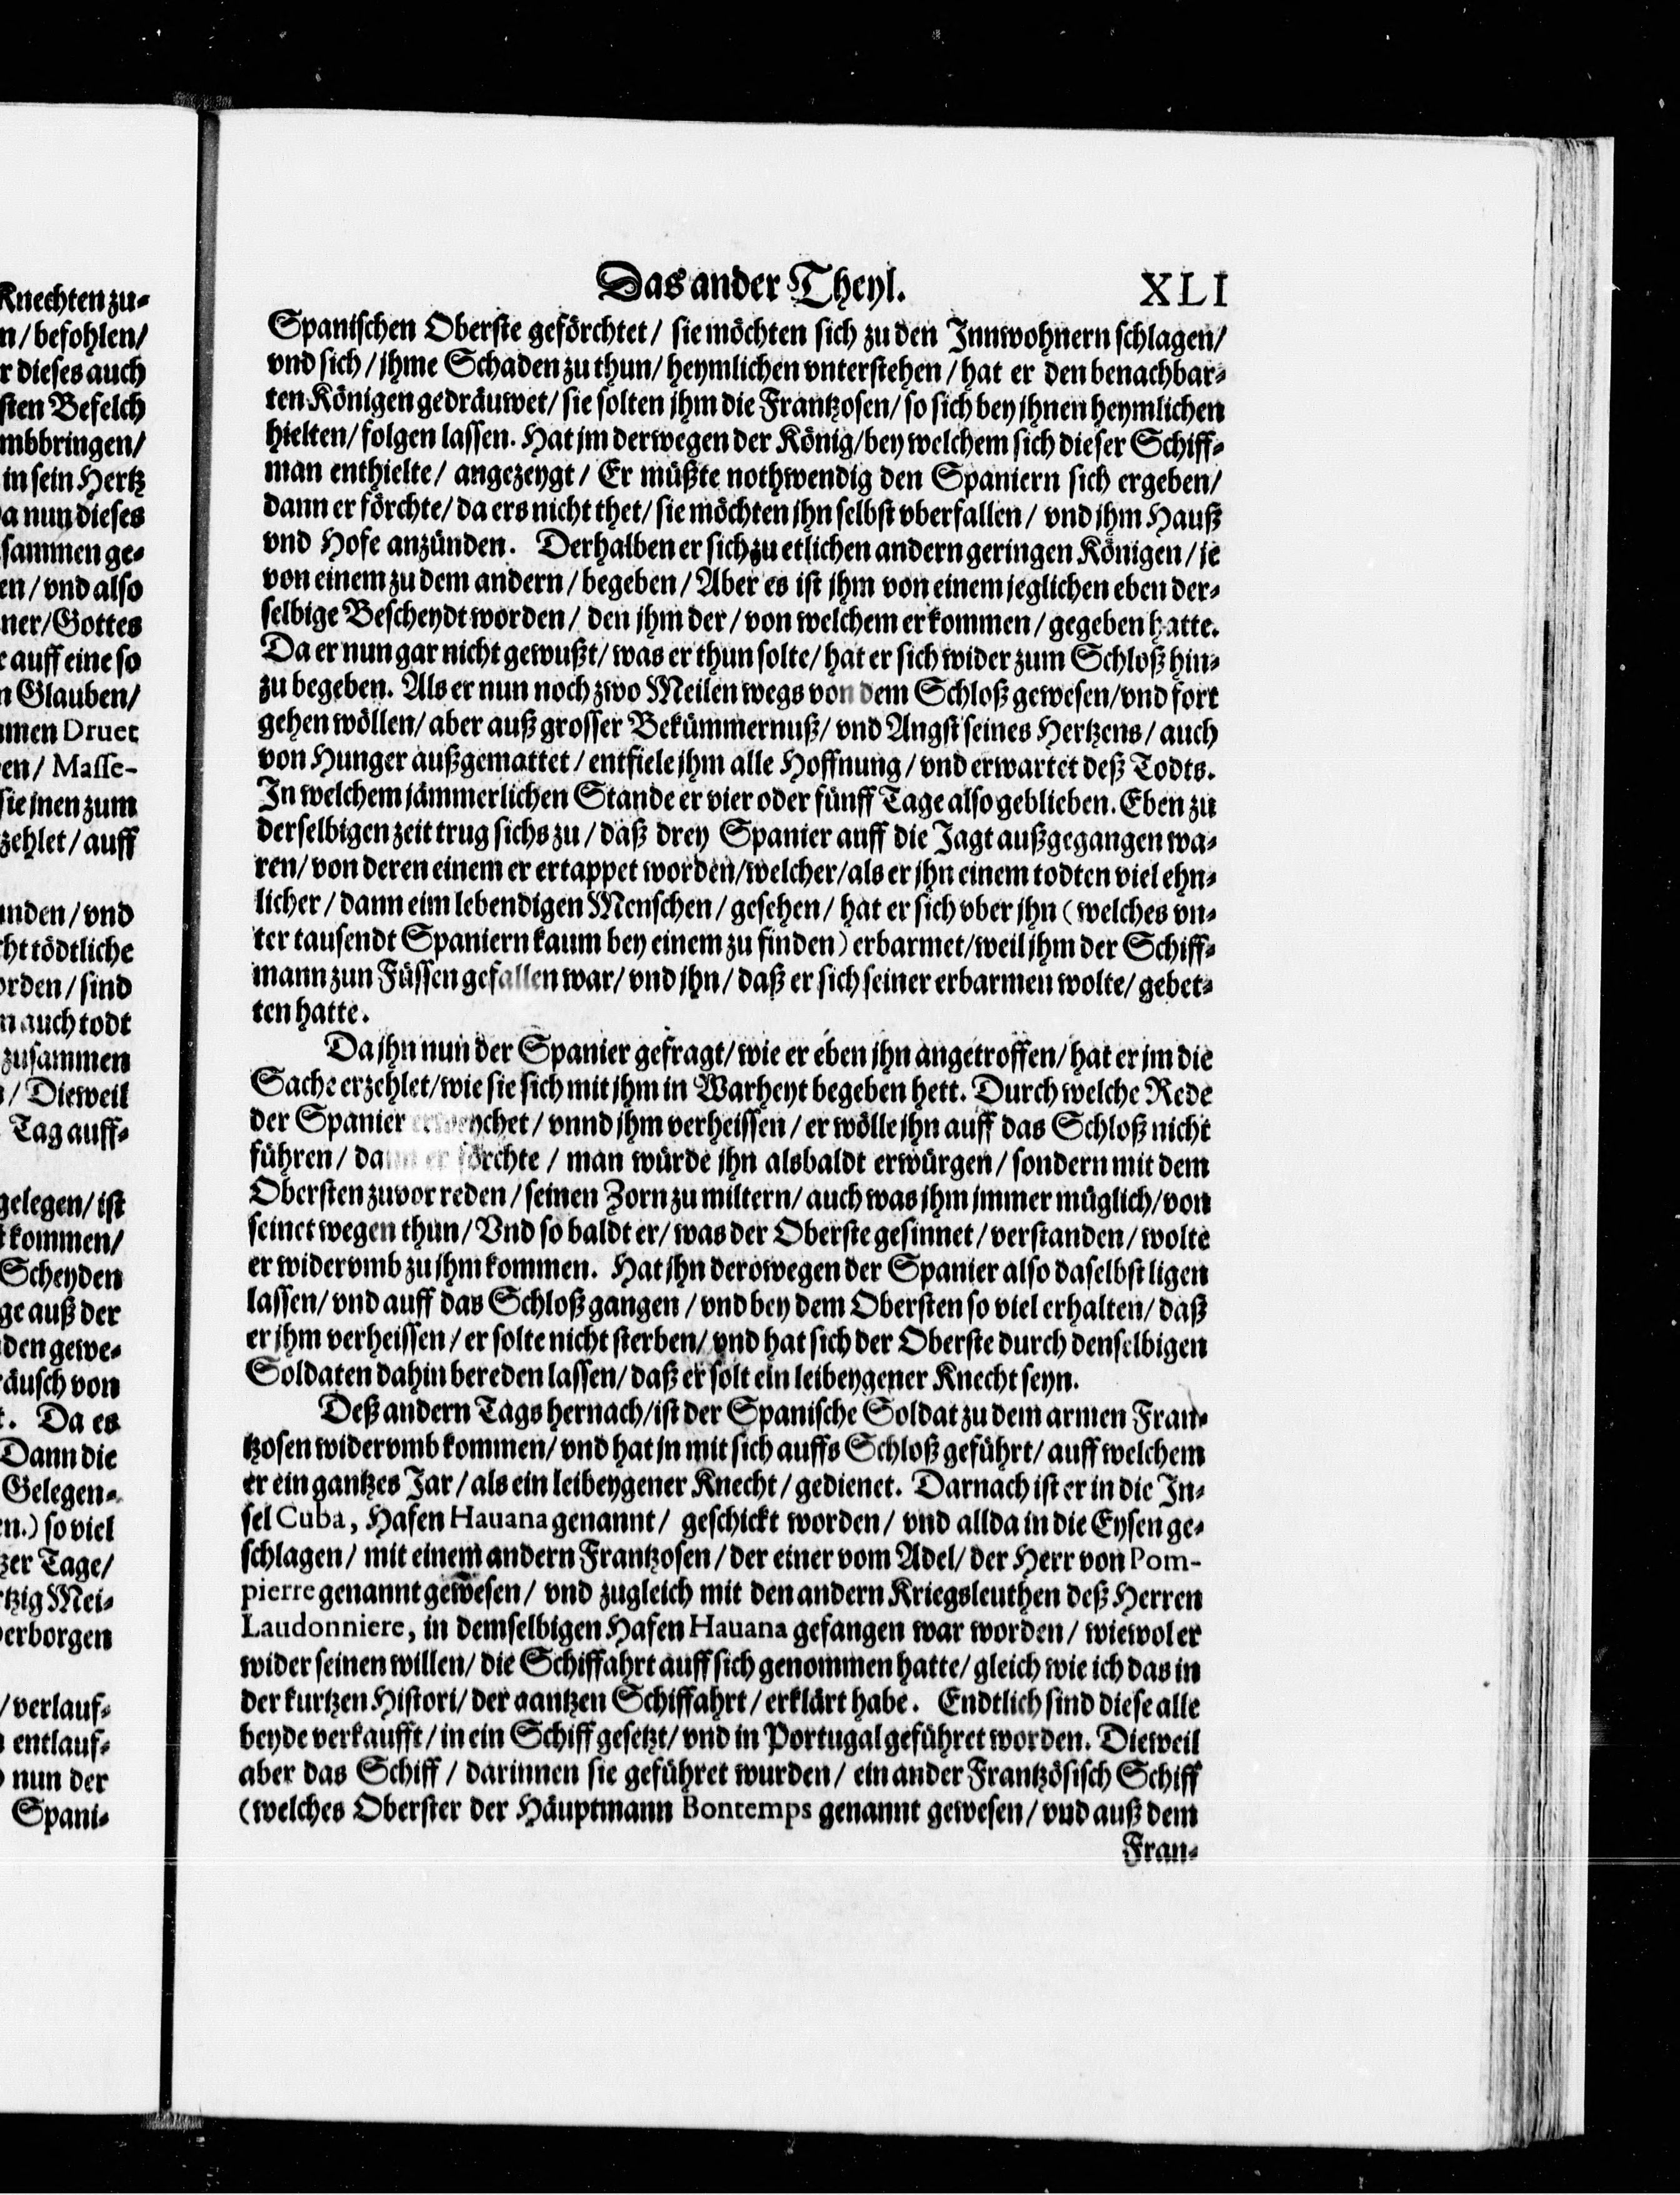 Knechten zu-
n/ befohlen/
r dieses auch
sten Befelch
mbbringen/
in sein Hertz
a nun dieses
sammen ge-
en/ vnd also
ner/ Gottes
auff eine so
n Glauben/
men Druet
en/ Masse-
sie jnen zum
zehlet/ auff
nden/ vnd
cht tödtliche
orden/ sind
n auch todt
zusammen
/ Dieweil
Tag auff-
gelegen/ ist
kommen/
Scheyden
ge auß der
den gewe-
räusch von
. Da es
Dann die
Gelegen-
en.) so viel
tzer Tage/
rtzig Mei-
verborgen
/ verlauf-
entlauf-
nun der
Spani-
Das ander Theyl. XLI
Spanischen Oberste geförchtet/ sie möchten sich zu den Innwohnern schlagen/
vnd sich/ jhme Schaden zu thun/ heymlichen vnterstehen/ hat er den benachbar-
ten Königen gedräuwet/ sie solten jhm die Frantzosen/ so sich bey jhnen heymlichen
hielten/ folgen lassen. Hat jm derwegen der König/ bey welchem sich dieser Schiff-
man enthielte/ angezeygt/ Er müßte nothwendig den Spaniern sich ergeben/
dann er förchte/ da ers nicht thet/ sie möchten jhn selbst vberfallen/ vnd jhm Hauß
vnd Hofe anzünden. Derhalben er sich zu etlichen andern geringen Königen/ je
von einem zu dem andern/ begeben/ Aber es ist jhm von einem jeglichen eben der-
selbige Bescheydt worden/ den jhm der/ von welchem er kommen/ gegeben hatte.
Da er nun gar nicht gewußt/ was er thun solte/ hat er sich wider zum Schloß hin-
zu begeben. Als er nun noch zwo Meilen wegs von dem Schloß gewesen/ vnd fort
gehen wöllen/ aber auß grosser Bekümmernuß/ vnd Angst seines Hertzens/ auch
von Hunger außgemattet/ entfiele jhm alle Hoffnung/ vnd erwartet deß Todts.
In welchem jämmerlichen Stande er vier oder fünff Tage also geblieben. Eben zu
derselbigen zeit trug sichs zu/ daß drey Spanier auff die Jagt außgegangen wa-
ren/ von deren einem er ertappet worden/ welcher/ als er jhn einem todten viel ehn-
licher/ dann eim lebendigen Menschen/ gesehen/ hat er sich vber jhn (welches vn-
ter tausendt Spaniern kaum bey einem zu finden) erbarmet/ weil jhm der Schiff-
mann zun Füssen gefallen war/ vnd jhn/ daß er sich seiner erbarmen wolte/ gebet-
ten hatte.
Da jhn nun der Spanier gefragt/ wie er eben jhn angetroffen/ hat er jm die
Sache erzehlet/ wie sie sich mit jhm in Warheyt begeben hett. Durch welche Rede
der Spanier erweychet/ vnnd jhm verheissen/ er wölle jhn auff das Schloß nicht
führen/ dann er förchte/ man würde jhn alsbaldt erwürgen/ sondern mit dem
Obersten zuvor reden/ seinen Zorn zu miltern/ auch was jhm jmmer müglich/ von
seinet wegen thun/ Vnd so baldt er/ was der Oberste gesinnet/ verstanden/ wolte
er widervmb zu jhm kommen. Hat jhn derowegen der Spanier also daselbst ligen
lassen/ vnd auff das Schloß gangen/ vnd bey dem Obersten so viel erhalten/ daß
er jhm verheissen/ er solte nicht sterben/ vnd hat sich der Oberste durch denselbigen
Soldaten dahin bereden lassen/ daß er solt ein leibeygener Knecht seyn.
Deß andern Tags hernach/ ist der Spanische Soldat zu dem armen Fran-
tzosen widervmb kommen/ vnd hat in mit sich auffs Schloß geführt/ auff welchem
er ein gantzes Jar/ als ein leibeygener Knecht/ gedienet. Darnach ist er in die In-
sel Cuba, Hafen Hauana genannt/ geschickt worden/ vnd allda in die Eysen ge-
schlagen/ mit einem andern Frantzosen/ der einer vom Adel/ der Herr von Pom-
pierre genannt gewesen/ vnd zugleich mit den andern Kriegsleuthen deß Herren
Laudonniere, in demselbigen Hafen Hauana gefangen war worden/ wiewol er
wider seinen willen/ die Schiffahrt auff sich genommen hatte/ gleich wie ich das in
der kurtzen Histori/ der gantzen Schiffahrt/ erklärt habe. Endtlich sind diese alle
beyde verkaufft/ in ein Schiff gesetzt/ vnd in Portugal geführet worden. Dieweil
aber das Schiff/ darinnen sie geführet wurden/ ein ander Frantzösisch Schiff
(welches Oberster der Häuptmann Bontemps genannt gewesen/ vud auß dem
Fran-